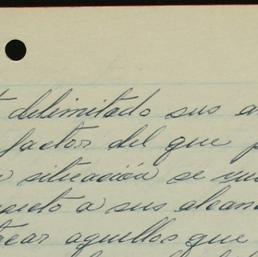 delimitado sus a
factor del que p
situación se
a sus alcan
rear aquellos que